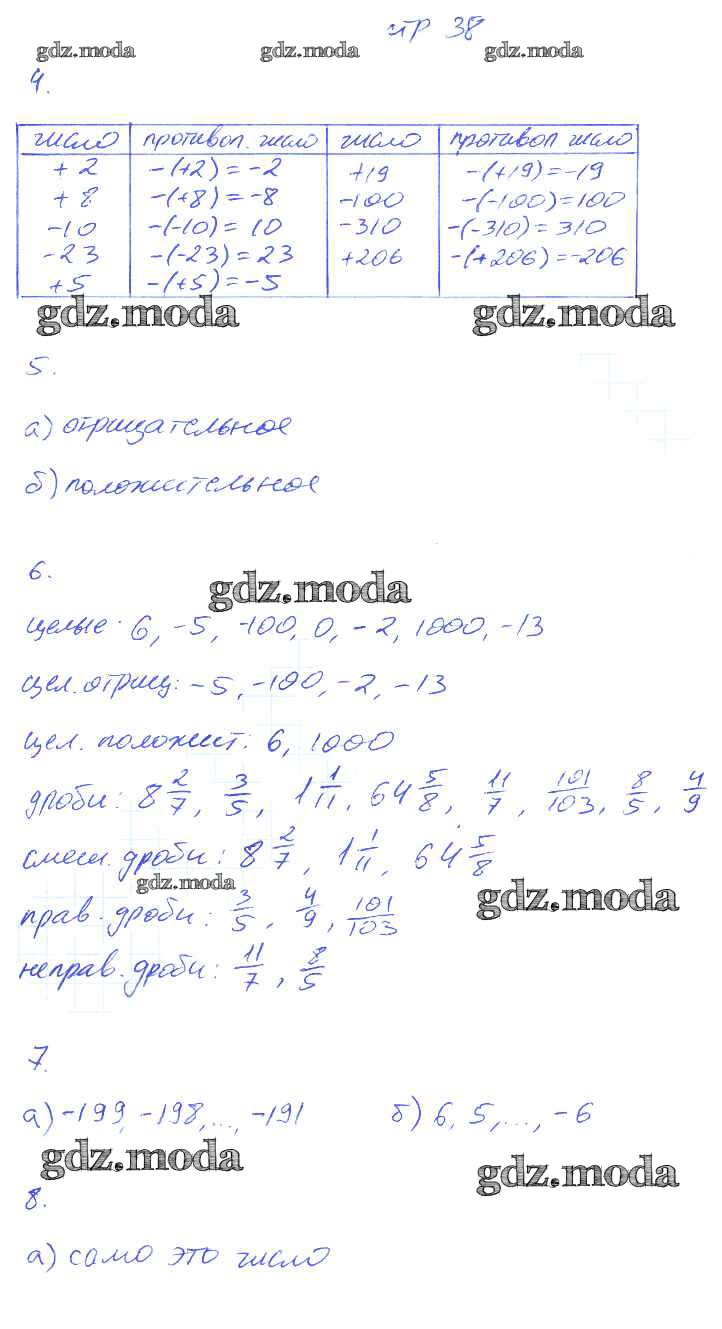 стр 38
gdz.moda gdz.moda gdz.moda
4.
число противоп. число число противоп число
+2 -(+2)=-2 +19 -(+19)=-19
+8 -(+8)=-8 -100 -(-100)=100
-10 -(-10)=10 -310 -(-310)=310
-23 -(-23)=23 +206 -(+206)=-206
+5 -(+5)=-5
gdz.moda gdz.moda
5.
а) отрицательное
б) положительное
6.
gdz.moda
целые: 6, -5, -100, 0, -2, 1000, -13
цел. отриц: -5, -100, -2, -13
цел. положит: 6, 1000
дроби: 8 2/7, 3/5, 1 1/11, 64 5/8, 11/7, 101/103, 8/5, 4/9
смеш. дроби: 8 2/7, 1 1/11, 64 5/8
gdz.moda gdz.moda
прав. дроби: 3/5, 4/9, 101/103
неправ. дроби: 11/7, 8/5
7.
а) -199, -198, ..., -191 б) 6, 5, ..., -6
gdz.moda gdz.moda
8.
а) само это число